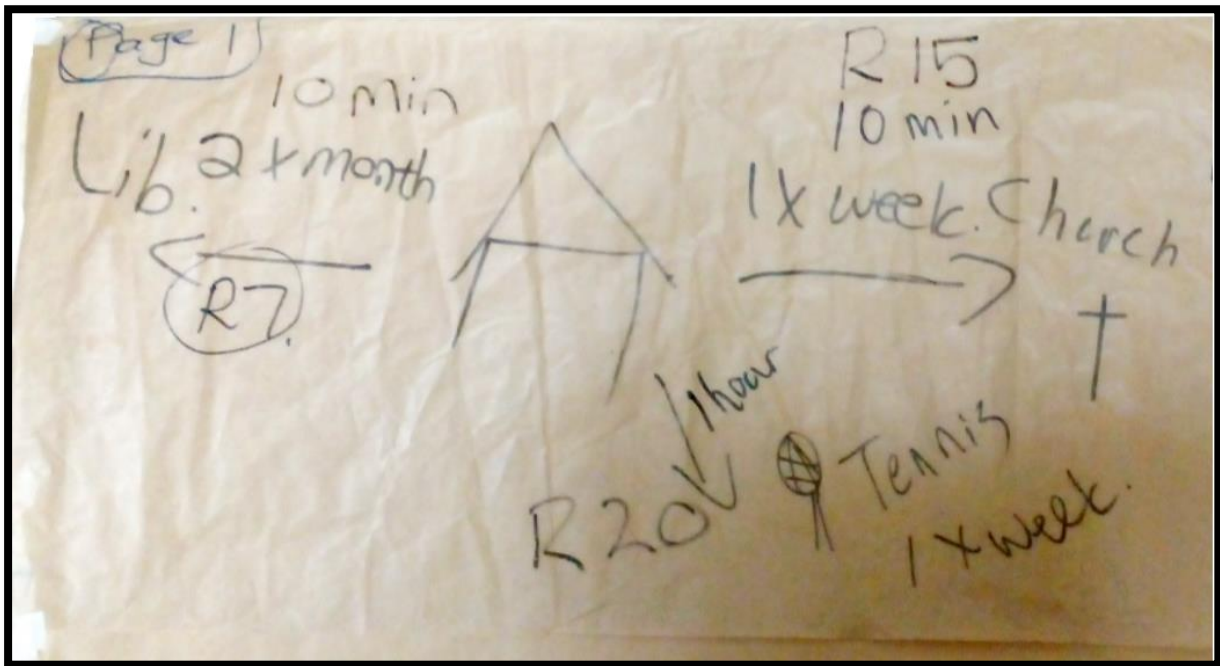 Page 1
10 min
Lib. 2 x month
R7.
R15
10 min
1 x week. Church
1 hour
R20
Tennis
1 x week.